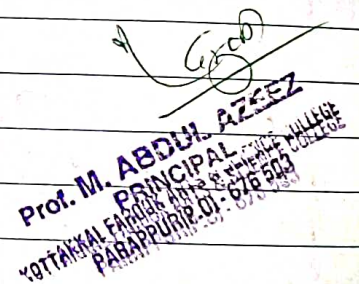 Prof. M. ABDUL AZEEZ
PRINCIPAL
KOTTAKKAL FAROOK ARTS & SCIENCE COLLEGE
PARAPPUR P.O. - 676 503